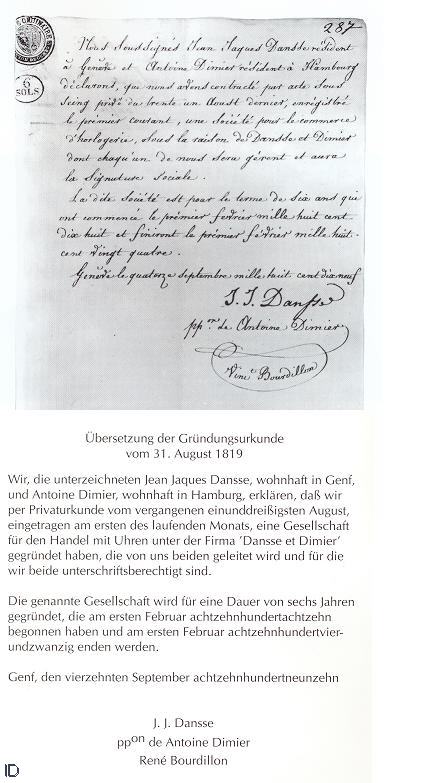 287
6
SOLS
Nous Soussignés Jean Jaques Dansse résident
à Genève et Antoine Dimier résident à Hambourg
déclarons, que nous avons contracté par acte sous
Seing privé du trente un Aoust dernier, enrégistré
le prémier courant, une Société pour le commerce
d'horlogerie, sous la raison de Dansse et Dimier
dont chaqu'un de nous sera gérent et aura
la Signature sociale.
La dite Société est pour le terme de six ans qui
ont commencé le prémier fevrier mille huit cent
dix huit et finiront le prémier février mille huit-
cent vingt quatre.
Genève le quatorze septembre mille huit cent dix neuf
J. J. Dansse
pp.on de Antoine Dimier
Bourdillon
Übersetzung der Gründungsurkunde
vom 31. August 1819
Wir, die unterzeichneten Jean Jaques Dansse, wohnhaft in Genf,
und Antoine Dimier, wohnhaft in Hamburg, erklären, daß wir
per Privaturkunde vom vergangenen einunddreißigsten August,
eingetragen am ersten des laufenden Monats, eine Gesellschaft
für den Handel mit Uhren unter der Firma 'Dansse et Dimier'
gegründet haben, die von uns beiden geleitet wird und für die
wir beide unterschriftsberechtigt sind.
Die genannte Gesellschaft wird für eine Dauer von sechs Jahren
gegründet, die am ersten Februar achtzehnhundertachtzehn
begonnen haben und am ersten Februar achtzehnhundertvier-
undzwanzig enden werden.
Genf, den vierzehnten September achtzehnhundertneunzehn
J. J. Dansse
ppon de Antoine Dimier
René Bourdillon
ID